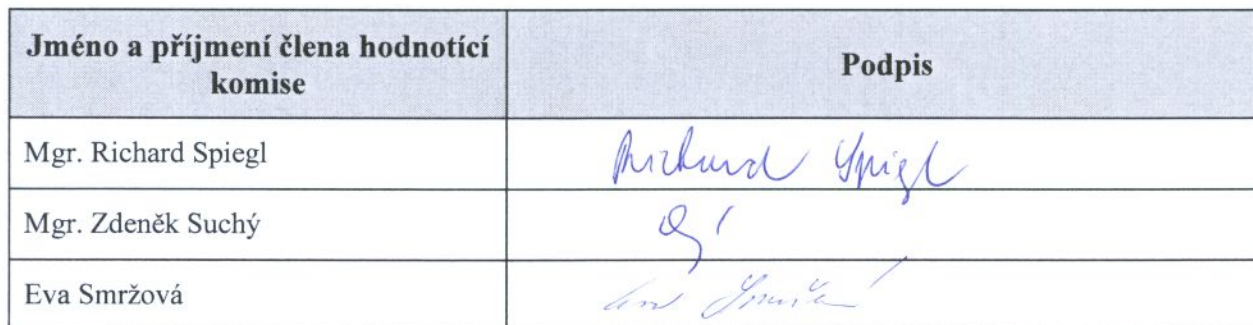 Jméno a příjmení člena hodnotící
komise
Podpis
Mgr. Richard Spiegl
Richard Spiegl
Mgr. Zdeněk Suchý
Eva Smržová